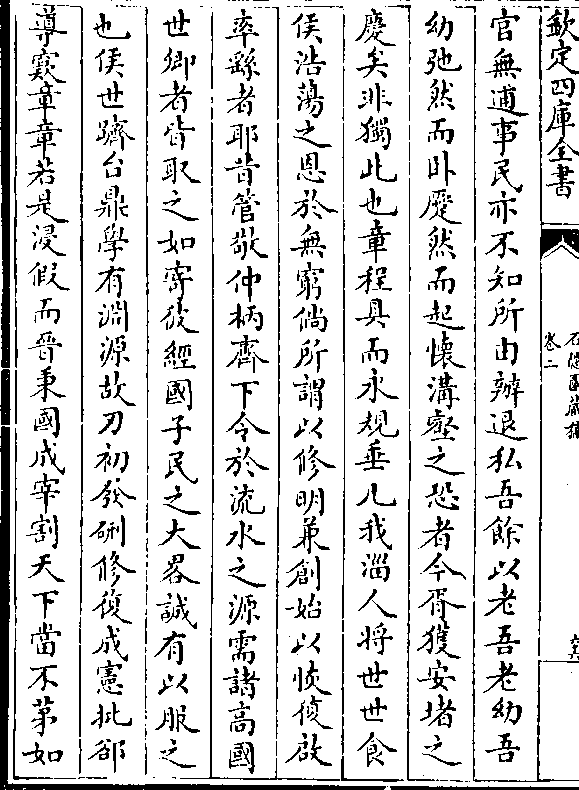 欽定四庫全書
卷二
官無逋事民亦不知所由辦退私吾餘以老吾老幼吾
幼弛然而卧蹙然而起懷溝壑之恐者今胥獲安堵之
慶矣非獨此也章程具而永規垂凡我淄人將世世食
侯浩蕩之恩於無窮倘所謂以修明兼創始以恢復啟
率繇者耶昔管敬仲柄齊下令於流水之源需諸高國
世卿者皆取之如寄彼經國子民之大畧誠有以服之
也侯世躋台鼎學有淵源故刀初發硎修復成憲批郤
導窾章章若是浸假而晉秉國成宰割天下當不第如